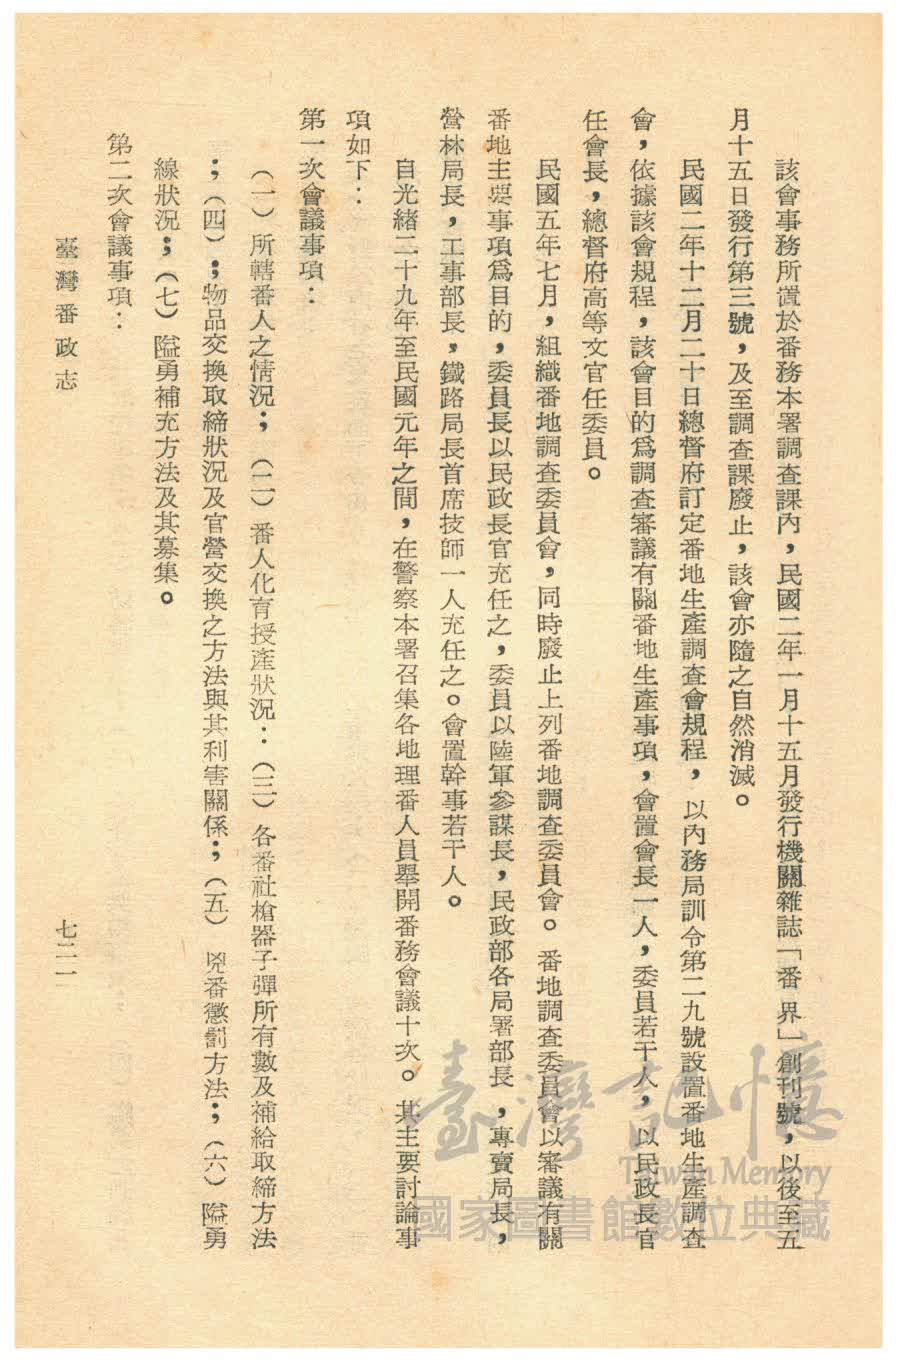 該會事務所置於番務本署調査課內，民國二年一月十五月發行機關雜誌「番界」創刊號，以後至五
月十五日發行第三號，及至調査課廢止，該會亦隨之自然消滅。
民國二年十二月二十日總督府訂定番地生產調査會規程，以內務局訓令第二九號設置番地生產調査
會，依據該會規程，該會目的爲調査審議有關番地生產事項，會置會長一人，委員若干人，以民政長官
任會長，總督府高等文官任委員。
民國五年七月，組織番地調査委員會，同時廢止上列番地調査委員會。番地調査委員會以審議有關
番地主要事項爲目的，委員長以民政長官充任之，委員以陸軍參謀長，民政部各局署部長，專賣局長，
營林局長，工事部長，鐵路局長首席技師一人充任之。會置幹事若干人。
自光緒二十九年至民國元年之間，在警察本署召集各地理番人員舉開番務會議十次。其主要討論事
項如下：
第一次會議事項：
（一）所轄番人之情況；（二）番人化育授產狀況：（三）各番社槍器子彈所有數及補給取締方法
；（四）；物品交換取締狀況及官營交換之方法與其利害關係；（五）兇番懲罰方法；（六）隘勇
線狀況；（七）隘勇補充方法及其募集。
第二次會議事項：
臺灣番政志
七二一
臺灣記憶
Taiwan Memory
國家圖書館數位典藏